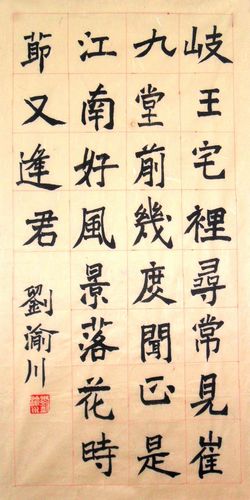 岐王宅裡尋常見崔
九堂前幾度聞正是
江南好風景落花時
節又逢君
劉渝川